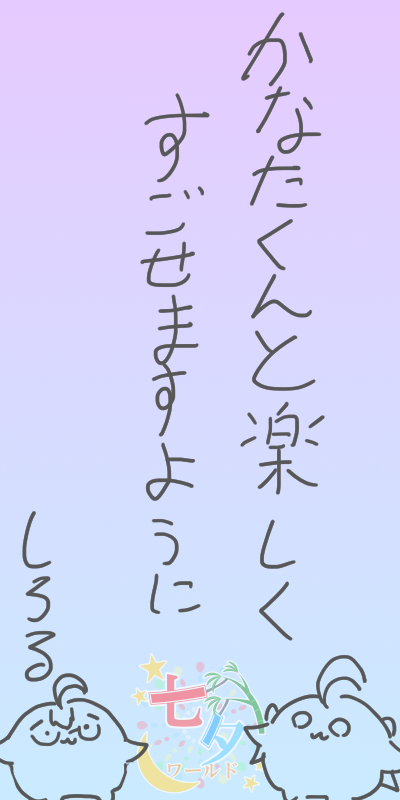 かなたくんと楽しく
すごせますように
しろる
七夕
ワールド